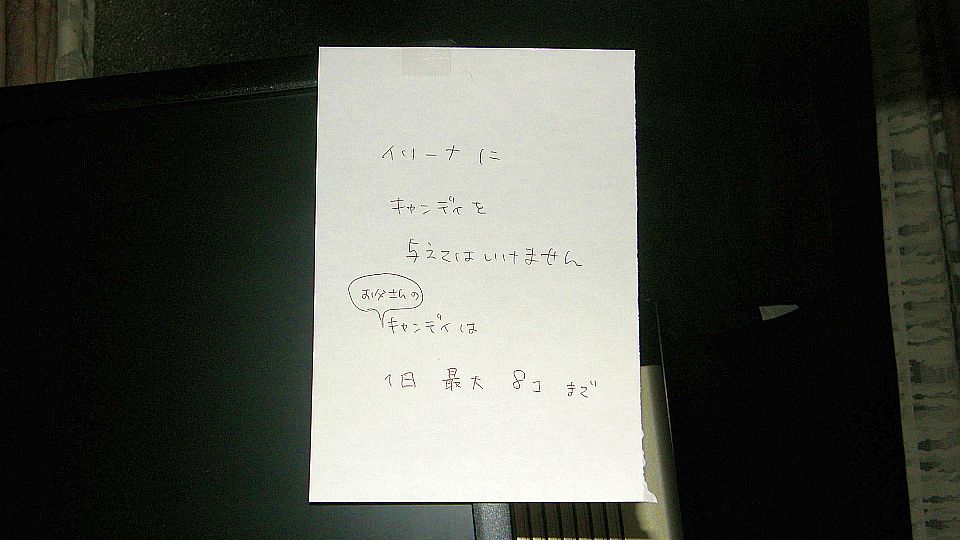 イリーナに
キャンディを
与えてはいけません
お父さんの
キャンディは
1日 最大 8コ まで